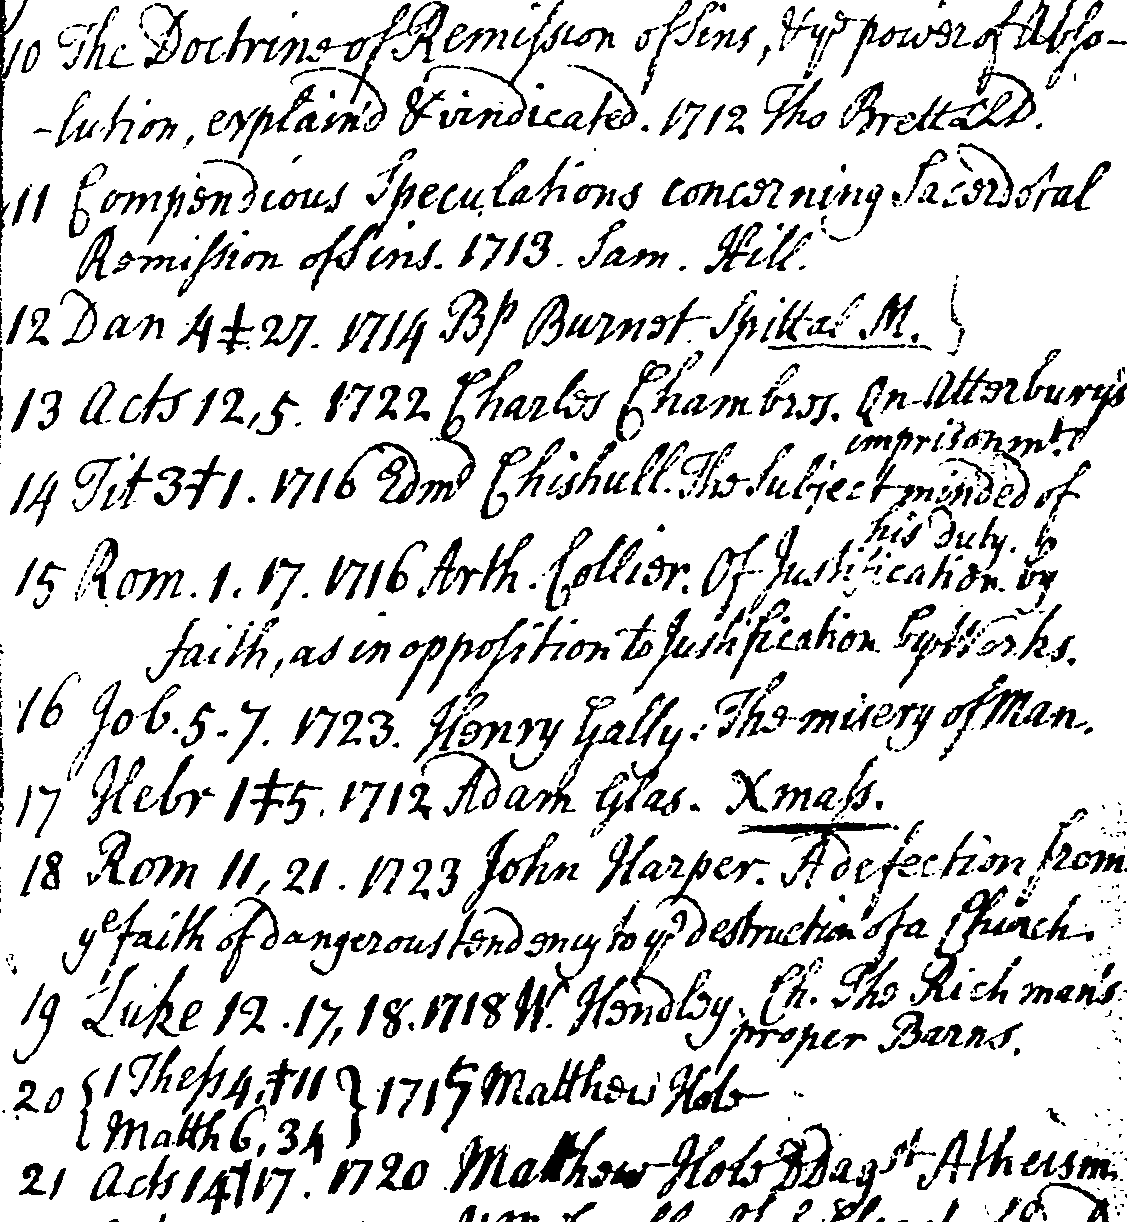 10 The Doctrine of Remission of Sins, & ye power of Abso-
-lution, explain'd & vindicated. 1712 Tho Brett LLD.
11 Compendious Speculations concerning Sacerdotal
Remission of Sins. 1713. Sam. Hill.
12 Dan 4 ‡ 27. 1714 Bp Burnet Spittal M.
13 Acts 12, 5. 1722 Charles Chambres. On Atterbury's
imprisonmt.
14 Tit 3 ‡ 1. 1716 Edmd Chishull. The Subject minded of
his duty.
15 Rom. 1. 17. 1716 Arth. Collier. Of Justification by
faith, as in opposition to Justification by Works.
16 Job. 5. 7. 1723. Henry Gally. The misery of Man.
17 Hebr 1 ‡ 5. 1712 Adam Glas. Xmass.
18 Rom 11, 21. 1723 John Harper. A defection from
ye faith of dangerous tendency to ye destruction of a Church.
19 Luke 12. 17, 18. 1718 W. Hendley. Ch. The Rich man's
proper Barns.
20 { 1 Thess 4, ‡ 11 } 1715 Matthew Hole
Matth 6, 34
21 Acts 14 ‡ 17. 1720 Matthew Hole DD agst Atheism